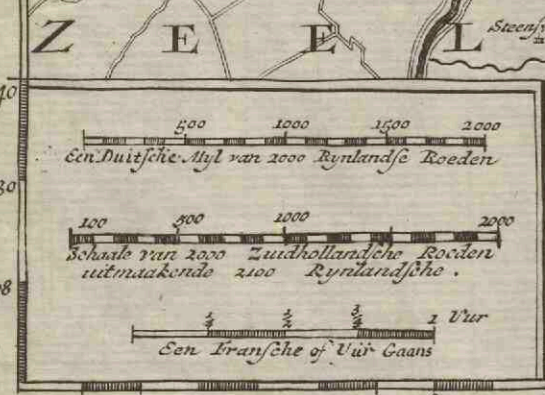 Z E E L
Steenf
40
500 1000 1500 2000
Een Duitsche Myl van 2000 Rynlandse Roeden
30
100 500 1000 2000
Schaale van 2000 Zuidhollandsche Roeden
uitmaakende 2100 Rynlandsche.
1/4 1/2 3/4 1 Uur
Een Fransche of Uur Gaans